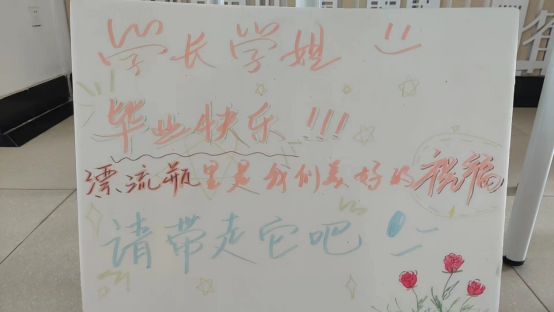 学长学姐
毕业快乐!!!
漂流瓶里是我们美好的祝福
请带走它吧!